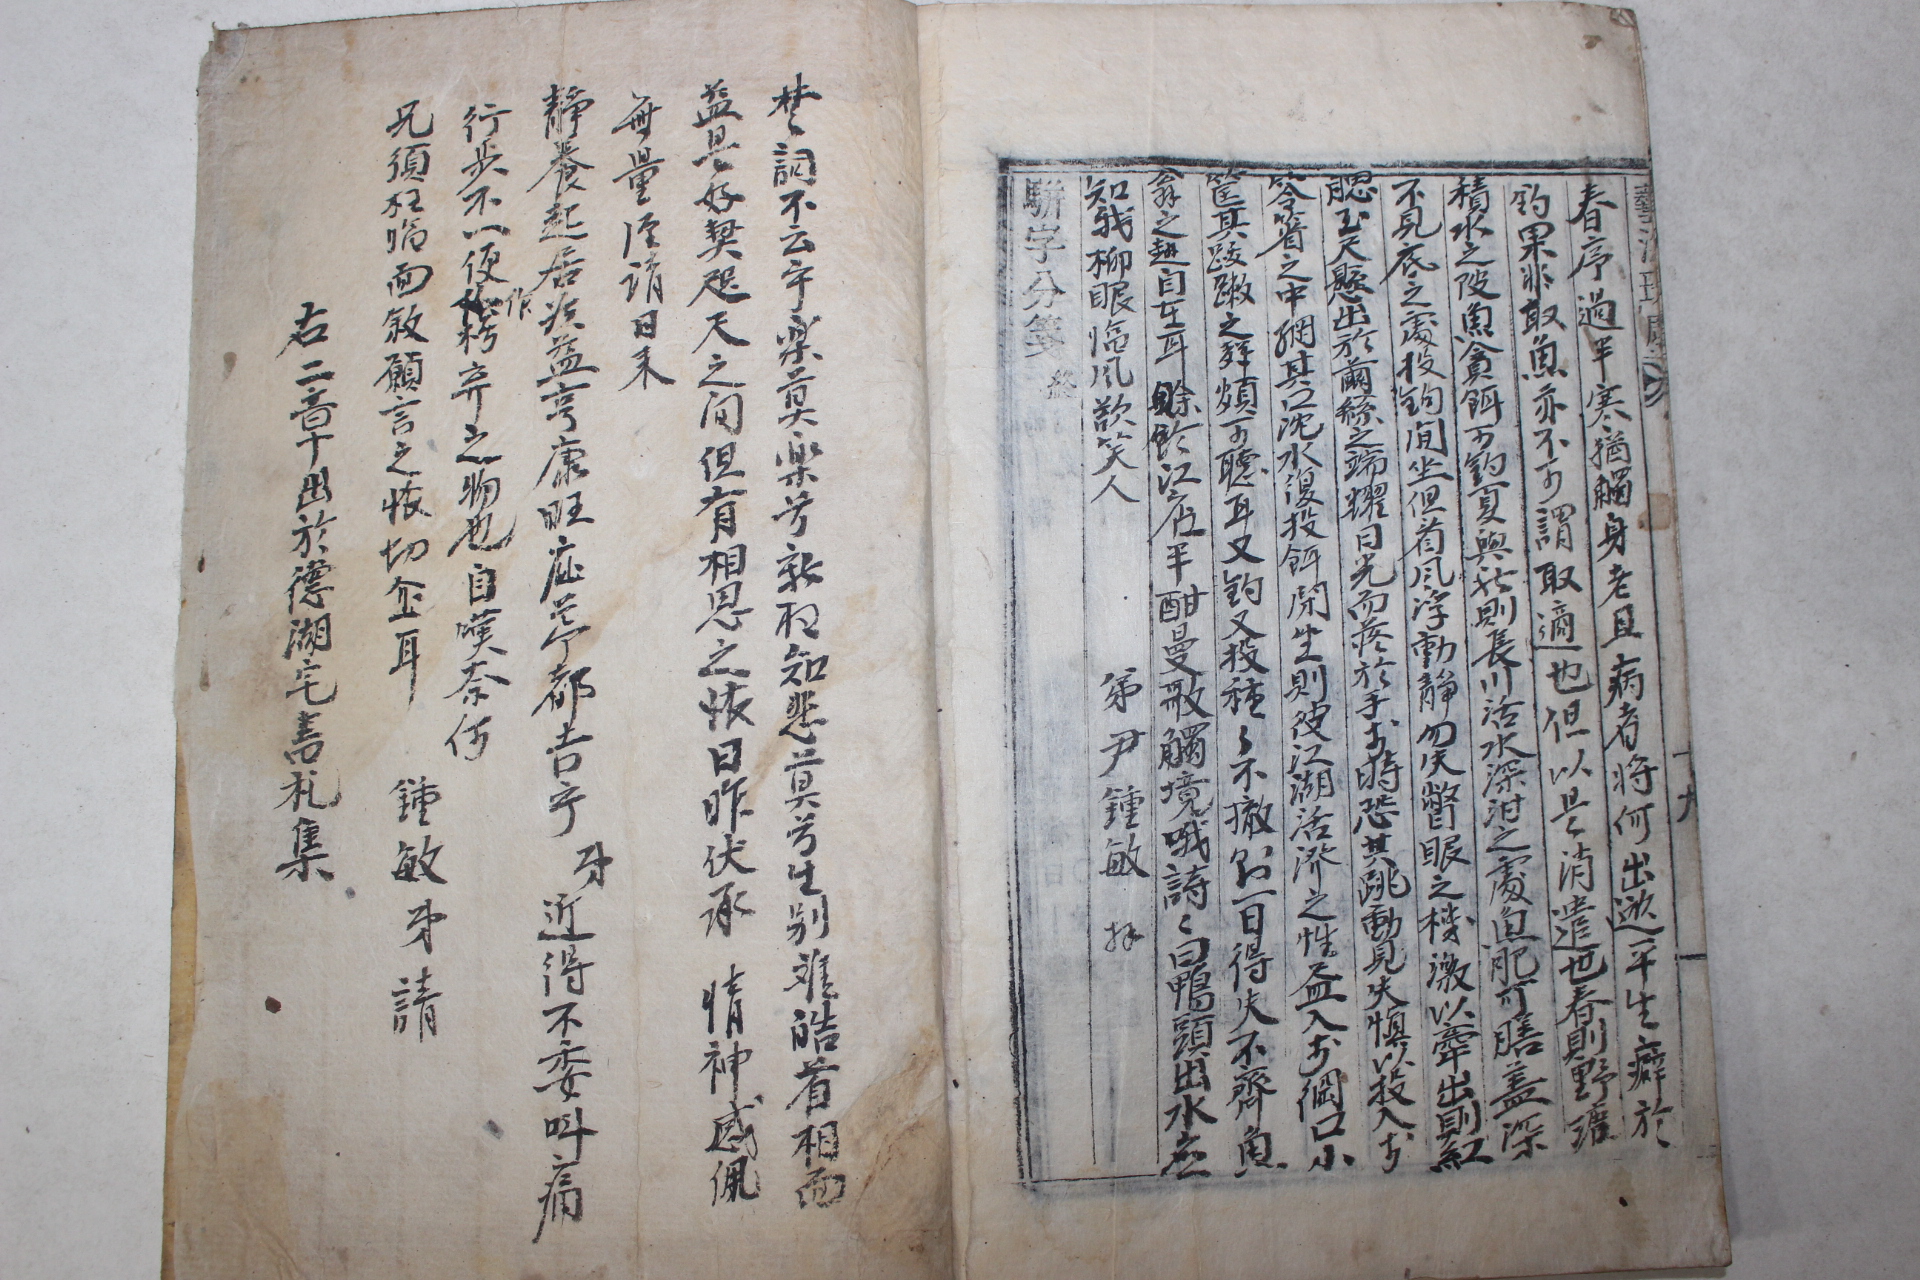 春序過半寒猶觸身老且病者將何出遊平生癖於
釣果非取魚亦不可謂取適也但以是消遣也春則野塘
積水之陂魚貪餌可釣夏與秋則長川活水深泔之處魚肥可膳盖深
不見底之處投釣間坐但看風浮動靜勿失瞥眼之機激以牽出則紅
腮玉尺懸出於繭絲之端耀日光而疼於手于時恐其跳動見失愼以投入于
笭箵之中網其口沈水復投餌閑坐則彼江湖活潑之性益入于網口小
筐其跋蹴之聲頗可聽耳又釣又投種〻不撤 一日得失不齊魚
翁之趣自在耳 賒 江店半酣曼歌觸境哦詩〻曰鴨頭出水
知我柳眼臨風欲笑人
弟 尹鍾敏 拜
駢字分箋 終
十九
楚詞不云乎楽莫楽兮新相知悲莫兮生别難皓首相面
益是好契咫尺之间但有相思之懷日昨伏承 情神感佩
無量謹請日來
靜養起居 益亨康旺 都吉乎 弟 近得不委叫痛
行步不以便作 弃之物也自嘆奈何
兄須枉臨而敘願言之懷切企耳 鍾敏弟請
右二章 出於德湖宅書札集